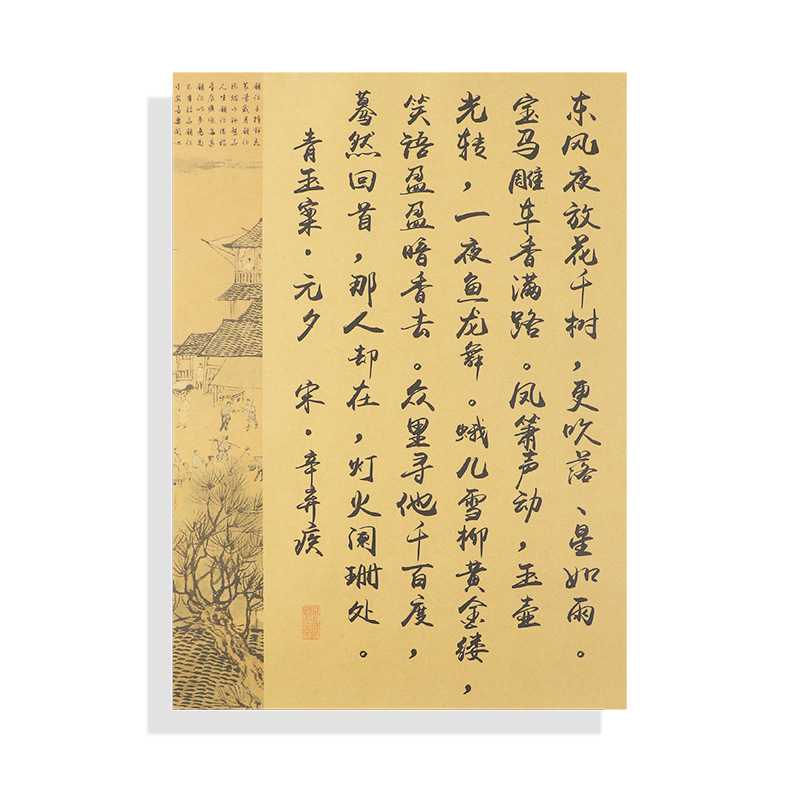 东风夜放花千树，更吹落、星如雨。
宝马雕车香满路。凤箫声动，玉壶
光转，一夜鱼龙舞。蛾儿雪柳黄金缕，
笑语盈盈暗香去。众里寻他千百度，
蓦然回首，那人却在，灯火阑珊处。
青玉案·元夕 宋·辛弃疾